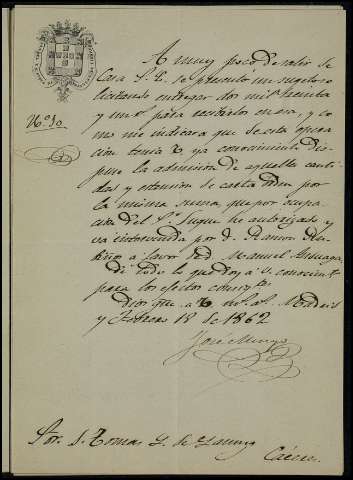 A muy poco de salir de
Casa S. E. se presentó un sugeto so
licitando entregar dos mil treinta
y un rs para recibirlos en esa, y co
No. 30
mo me indicara que de esta opera
cion tenia V. ya conocimiento dis
puse la admision de aquella canti
dad y estension de carta orden por
la misma suma, que por ocupa
cion del Sr. Duque he autorizado y
va intervenida por D. Ramon
á favor de D. Manuel
De todo lo que doy á V. conocimto
para los efectos consigtes
Dios gue. a V. ms. as. Madrid
y Febrero 18 de 1862
José
Sor. D. Tomas G. de
Cáceres.